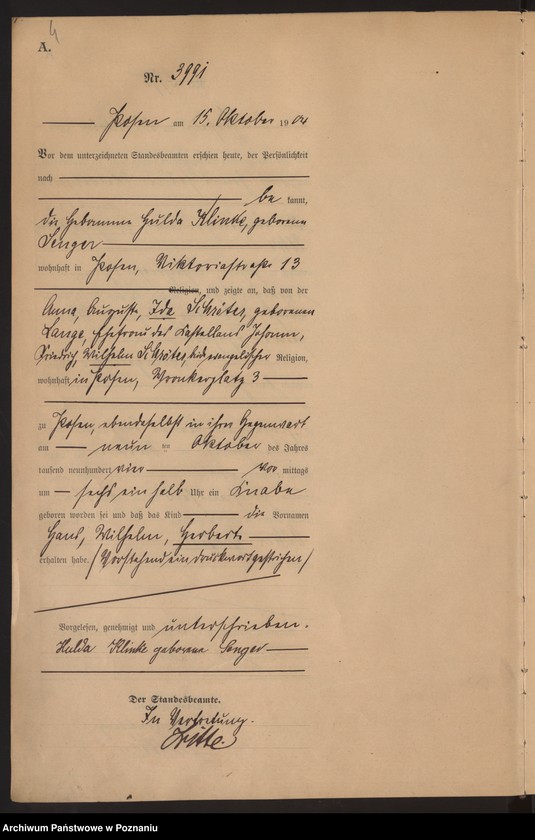 4
A.
Nr. 3991
Posen am 15. Oktober 1904
Vor dem unterzeichneten Standesbeamten erschien heute, der Persönlichkeit
nach
be kannt,
die Hebamme Hulda Klinke, geborene
Senger
wohnhaft in Posen, Viktoriastraße 13
Religion, und zeigte an, daß von der
Anna, Auguste, Ida Schröter, geborenen
Lange, Ehefrau des Kastellans Johann,
Friedrich, Wilhelm Schröter, beide evangelischer Religion,
wohnhaft in Posen, Wronkerplatz 3
zu Posen, ebendaselbst in ihrer Gegenwart
am neun ten Oktober des Jahres
tausend neunhundert vier Vor mittags
um sechs ein halb Uhr ein Knabe
geboren worden sei und daß das Kind die Vornamen
Hans, Wilhelm, Herbert
erhalten habe. (Vorstehend ein Druckwort gestrichen)
Vorgelesen, genehmigt und unterschrieben.
Hulda Klinke geborene Senger
Der Standesbeamte.
In Vertretung.
Archiwum Państwowe w Poznaniu